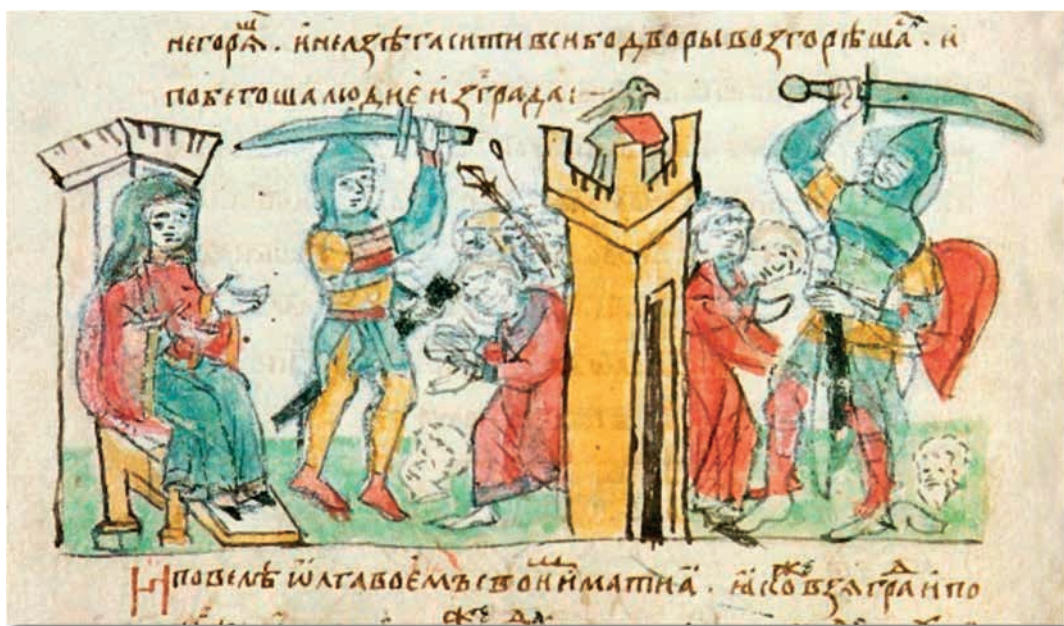 не горѧш . и нелзѣ гасити вси бо дворы возгорѣшаⷭ . и
побегоша людиє из града :
И повелѣ ѡлга воемъ своиⷨ имати ꙗ . ꙗкоⷤ взѧ граⷣ и по